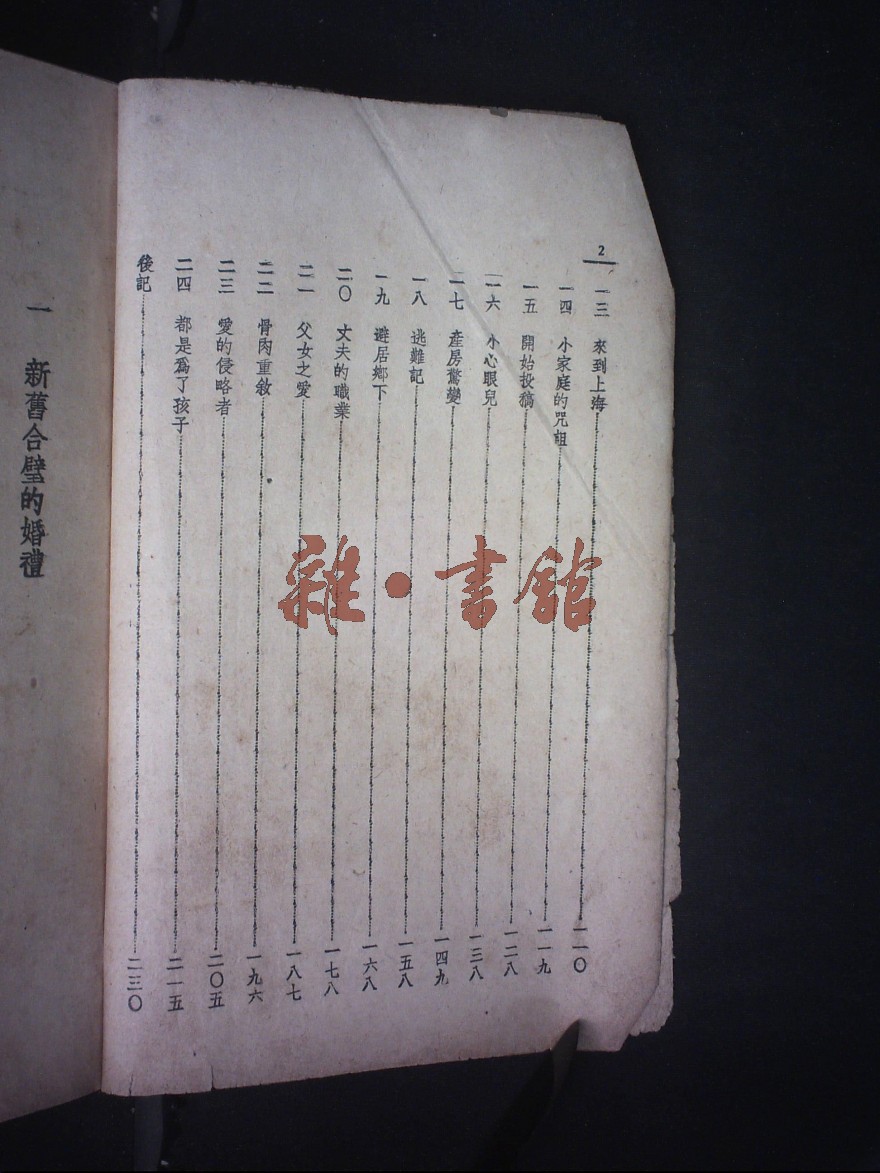 2
一三 來到上海 一一〇
一四 小家庭的咒詛 一一九
一五 開始投稿 一二八
一六 小心眼兒 一三八
一七 產房驚變 一四九
一八 逃難記 一五八
一九 避居鄉下 一六八
二〇 丈夫的職業 一七八
二一 父女之愛 一八七
二二 骨肉重敘 一九六
二三 愛的侵略者 二〇五
二四 都是爲了孩子 二一五
後記 二三〇
一 新舊合璧的婚禮
雜·書館